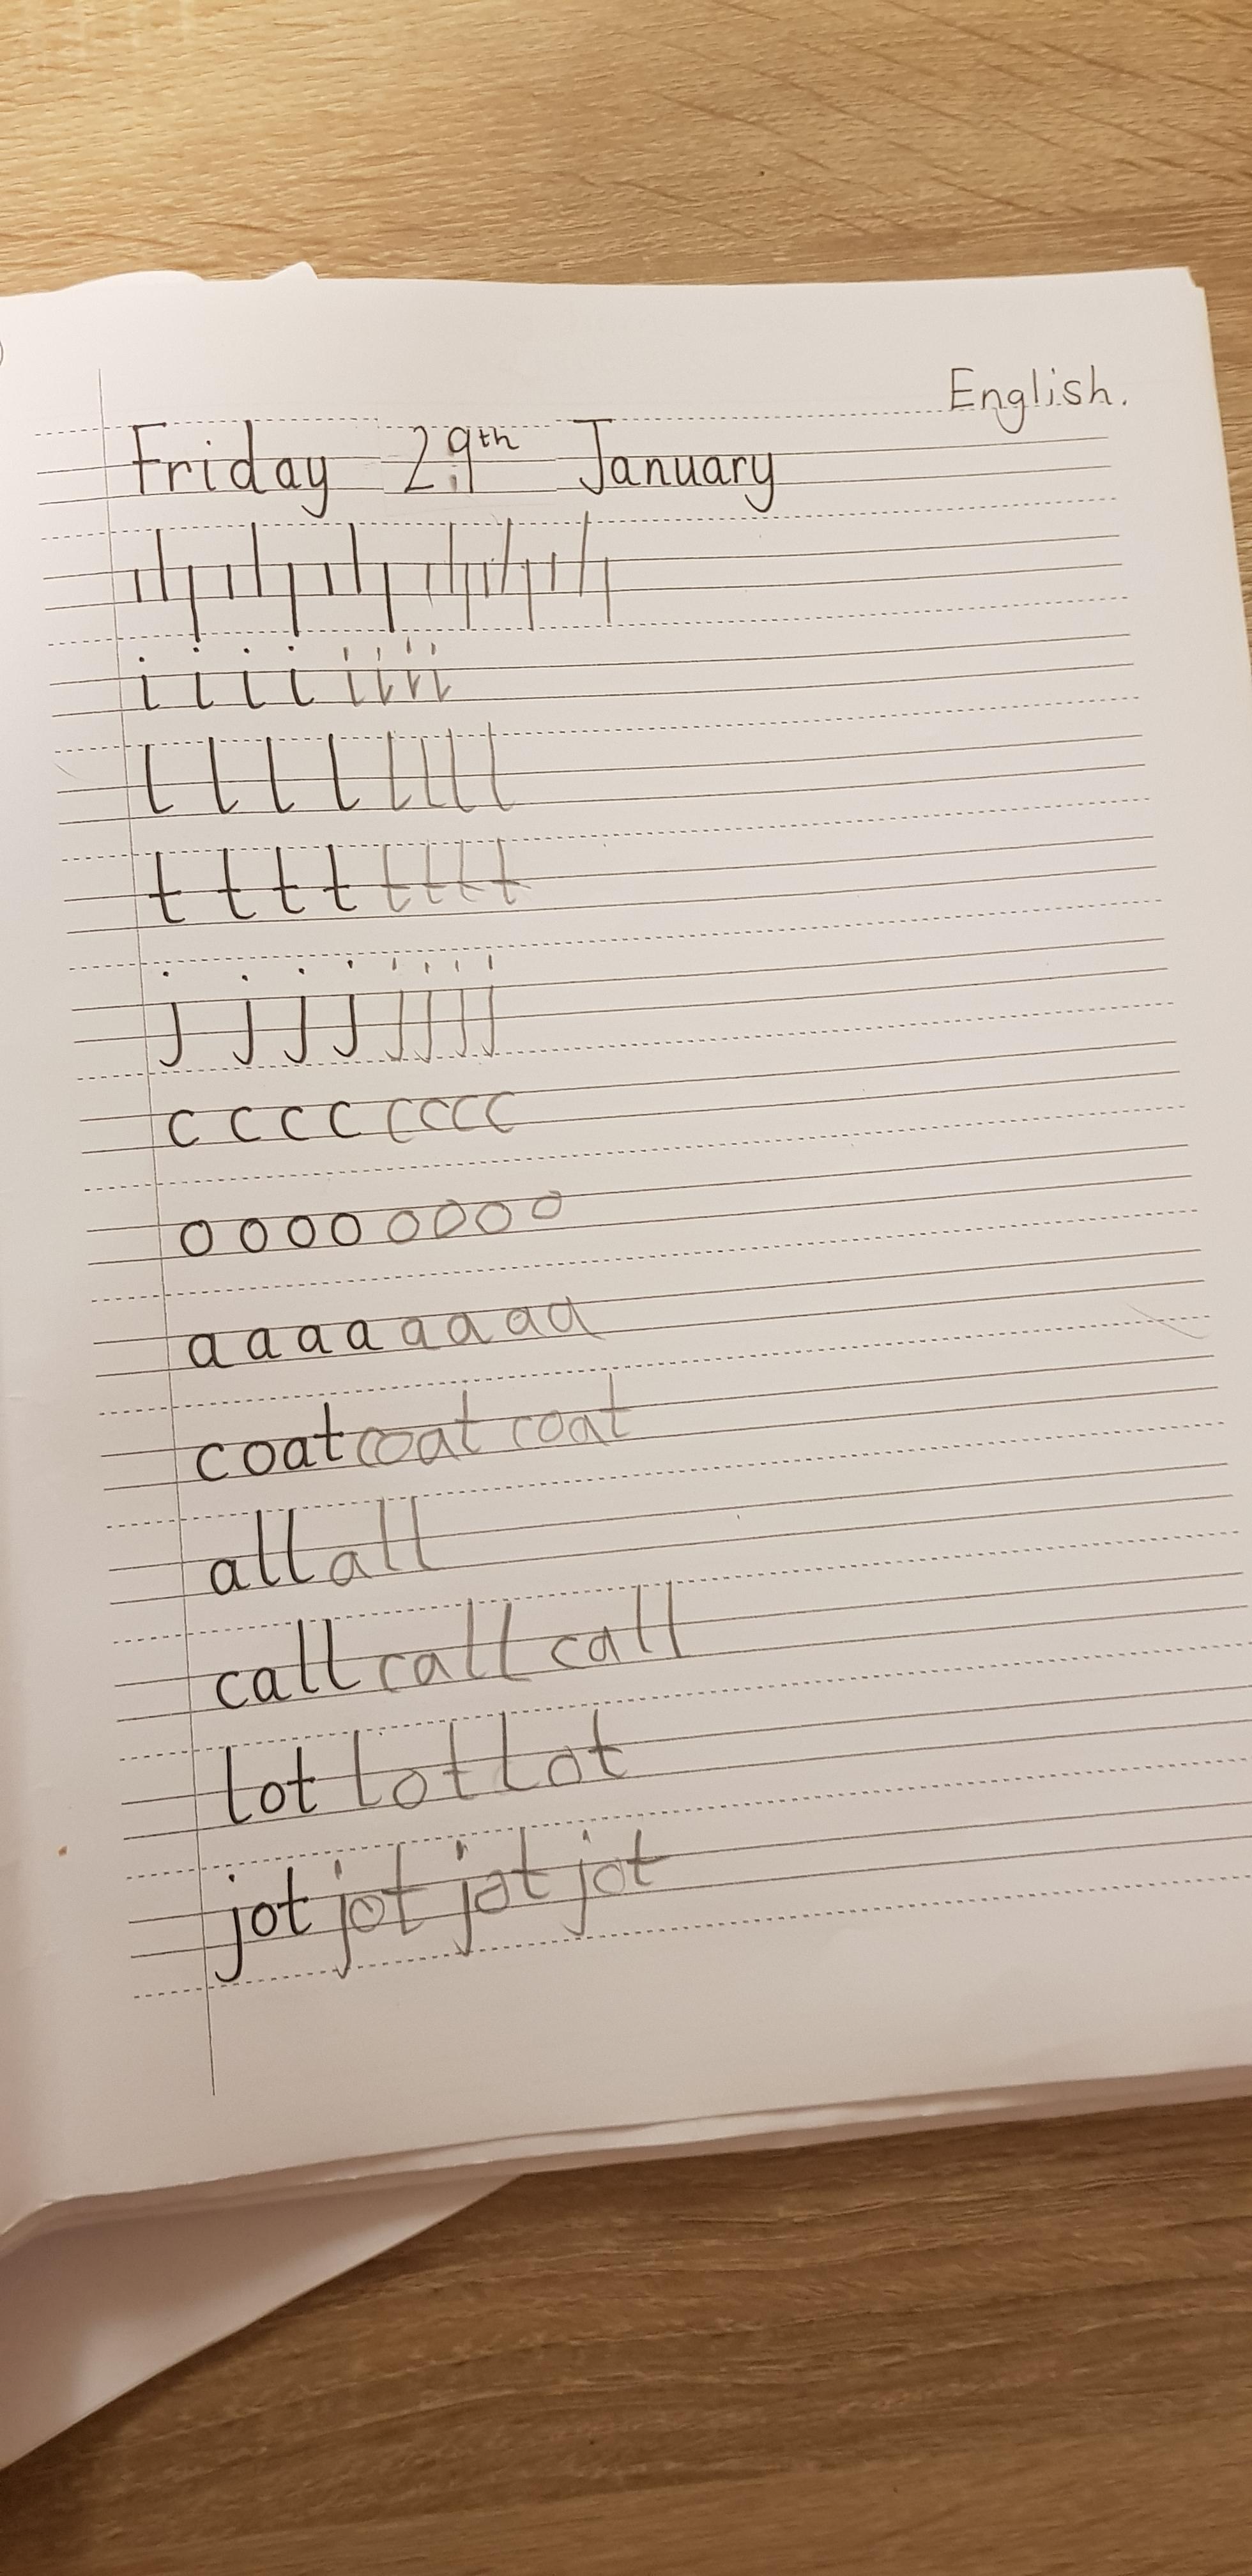 English.
Friday 29th January
i i i i i i i i
l l l l l l l l
t t t t t t t t
j j j j j j j j
c c c c c c c c
o o o o o o o o
a a a a a a a a
coat coat coat
all all
call call call
lot lot lot
jot jot jot jot